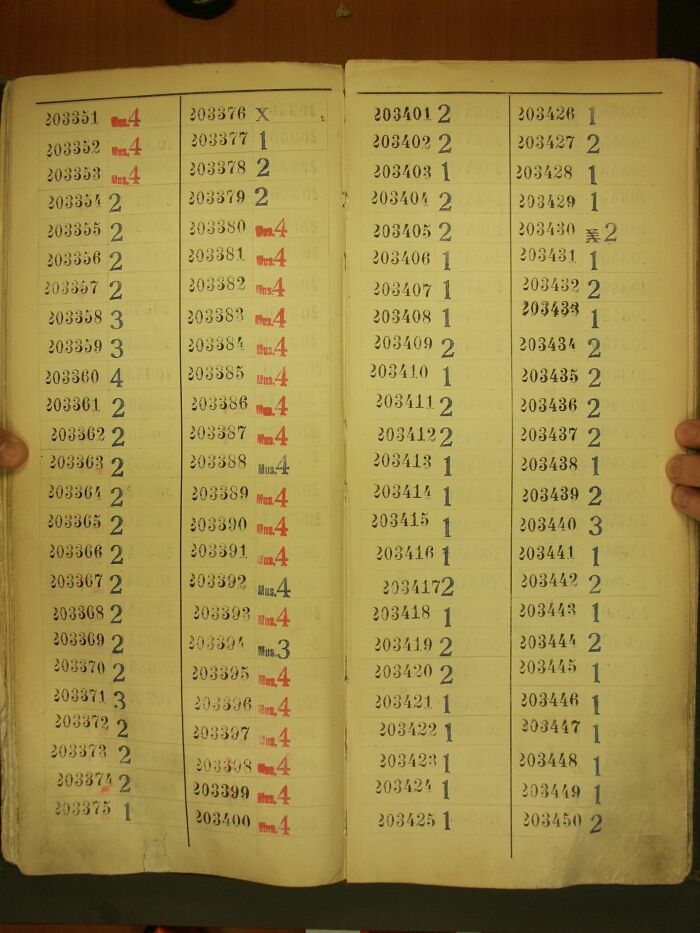 203351 Mus.4
203352 Mus.4
203353 Mus.4
203354 2
203355 2
203356 2
203357 2
203358 3
203359 3
203360 4
203361 2
203362 2
203363 2
203364 2
203365 2
203366 2
203367 2
203368 2
203369 2
203370 2
203371 3
203372 2
203373 2
203374 2
203375 1
203376 X
203377 1
203378 2
203379 2
203380 Mus.4
203381 Mus.4
203382 Mus.4
203383 Mus.4
203384 Mus.4
203385 Mus.4
203386 Mus.4
203387 Mus.4
203388 Mus.4
203389 Mus.4
203390 Mus.4
203391 Mus.4
203392 Mus.4
203393 Mus.4
203394 Mus.3
203395 Mus.4
203396 Mus.4
203397 Mus.4
203398 Mus.4
203399 Mus.4
203400 Mus.4
203401 2
203402 2
203403 1
203404 2
203405 2
203406 1
203407 1
203408 1
203409 2
203410 1
203411 2
203412 2
203413 1
203414 1
203415 1
203416 1
203417 2
203418 1
203419 2
203420 2
203421 1
203422 1
203423 1
203424 1
203425 1
203426 1
203427 2
203428 1
203429 1
203430 X 2
203431 1
203432 2
203433 1
203434 2
203435 2
203436 2
203437 2
203438 1
203439 2
203440 3
203441 1
203442 2
203443 1
203444 2
203445 1
203446 1
203447 1
203448 1
203449 1
203450 2